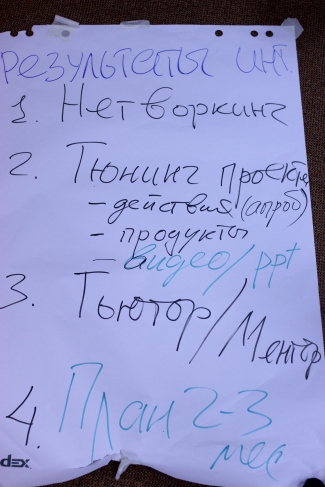 результаты инт.
1. Нетворкинг
2. Тюнинг проекта
- действия (апроб)
- продукты
- видео/ppt
3. Тьютор/Ментор
4. План 2-3
мес
dex